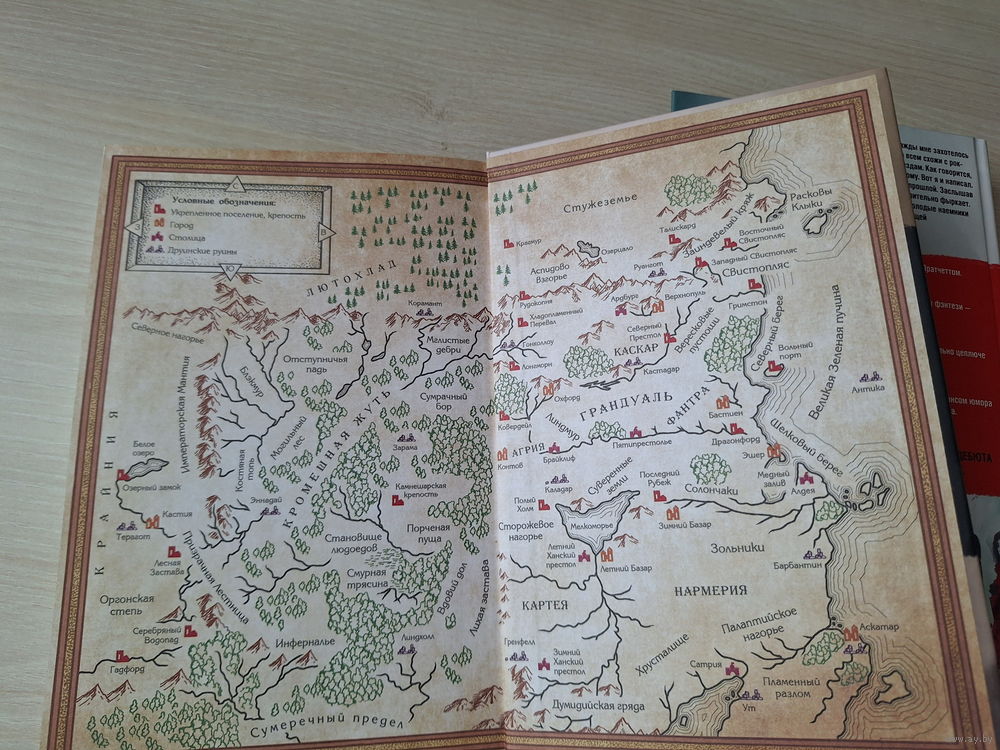 Условные обозначения:
Укрепленное поселение, крепость
Город
Столица
Друинские руины
З
В
Ю
ЛЮТОХЛАД
Северное нагорье
Корамант
Отступничья
падь
Мглистые
дебри
Императорская Мантия
Сумрачный
бор
КРОМЕШНАЯ ЖУТЬ
Могильный
лес
Зарама
Белое
озеро
Костяная
топь
Озерный замок
КРАЙНИЯ
Эннедай
Камнешарская
крепость
Кастия
Терагот
Порченая
пуща
Становище
людоедов
Призрачная Лестница
Лесная
Застава
Смурная
трясина
Вдовий дол
Лихая застава
Оргонская
степь
Серебряный
Водопад
Инферналье
Линдмол
Гадфорд
Сумеречный предел
Стужеземье
Расковы
Клыки
Талискард
Заиндевелый кряж
Крагмур
Озерцало
Восточный
Свистопляс
Аспидово
Взгорье
Руангот
Западный Свистопляс
СВИСТОПЛЯС
Рудокопня
Ардбург
Верхнопуль
Гримстон
Хладопламенный
Перевал
Северный
Престол
Вересковые
пустоши
Северный берег
Великая Зеленая пучина
КАСКАР
Вольный
порт
Лонгмори
Кастадар
Антика
Оксфорд
ГРАНДУАЛЬ
ФАНТРА
Ковердейл
Линдмур
Бастиен
Шелковый берег
АГРИЯ
Пятипрестолье
Драгонфорд
Контов
Брайклиф
Эшер
Суверенные
земли
Последний
Рубеж
Каладар
Солончаки
Медный
залив
Алдея
Полый
Холм
Сторожевое
нагорье
Мелкоморье
Зимний Базар
Летний
Ханский
престол
Летний Базар
Зольники
Барбантин
КАРТЕЯ
НАРМЕРИЯ
Палаптийское
нагорье
Аскатар
Гренфелл
Хрусталище
Зимний
Ханский
престол
Сатрия
Пламенный
разлом
Ут
Думидийская гряда
жды мне захотелось
всем схожи с рок-
здам. Как говорится,
ому. Вот я и написал.
прошлой. Заслышав
вительно фыркает.
лодые наемники
щей
Пратчеттом.
фэнтези —
ально цепляюще
нсом юмора
ДЕБЮТА
ay.by